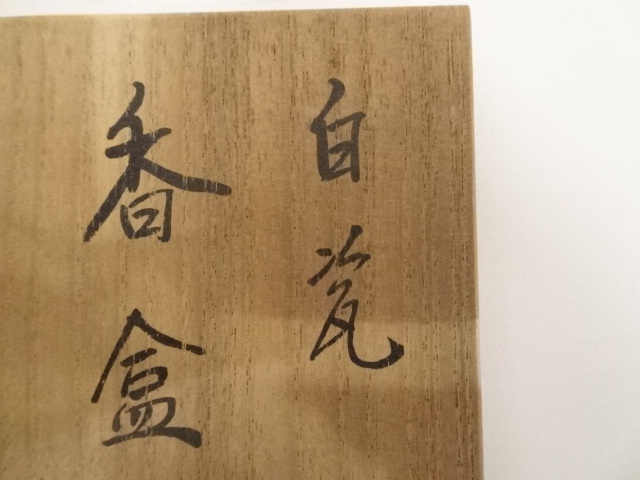 白瓷
香盒